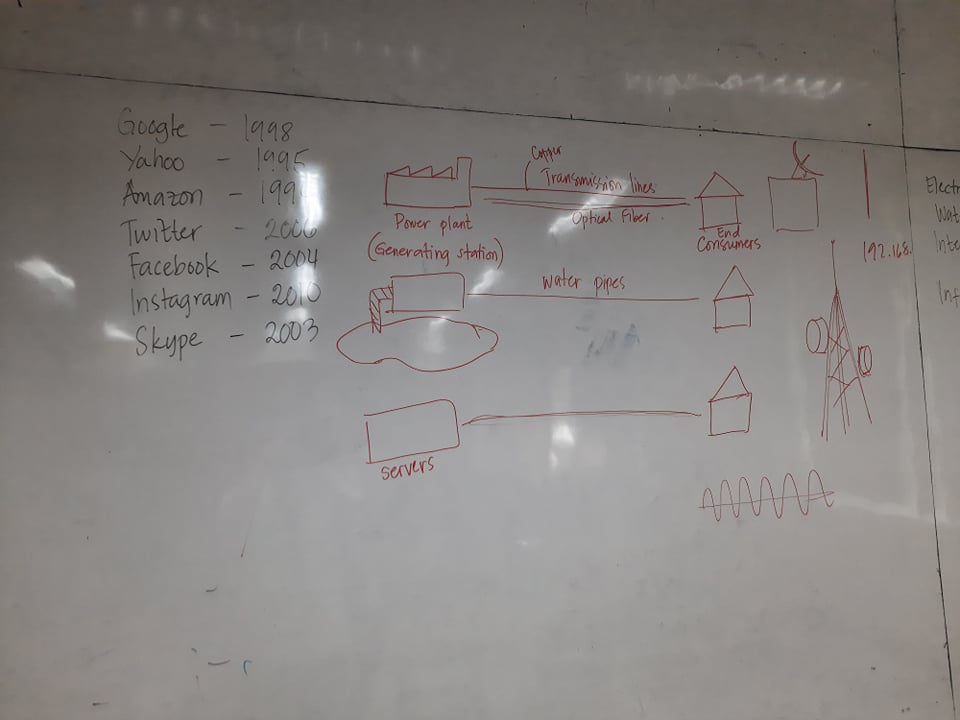 Google - 1998
Yahoo - 1995
Amazon - 199
Twitter - 2006
Facebook - 2004
Instagram - 2010
Skype - 2003
Copper
Transmission lines
Optical Fiber
Power plant
(Generating station)
End
Consumers
water pipes
servers
192.168.
Electr
Wat
Inte
Inf